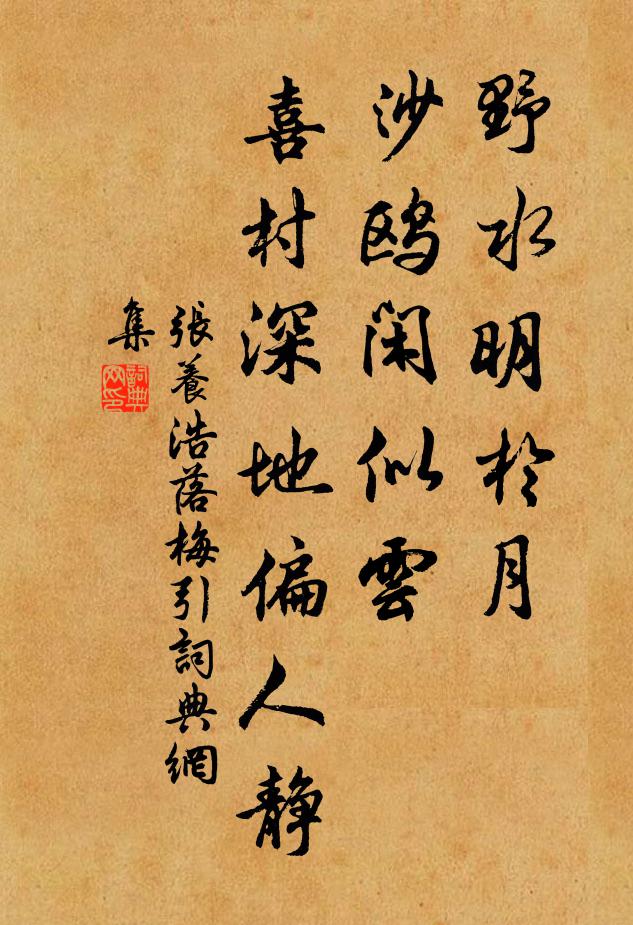 野水明於月
沙鸥閑似雲
喜村深地偏人静
張養浩落梅引詞典網
集
詞典
网印